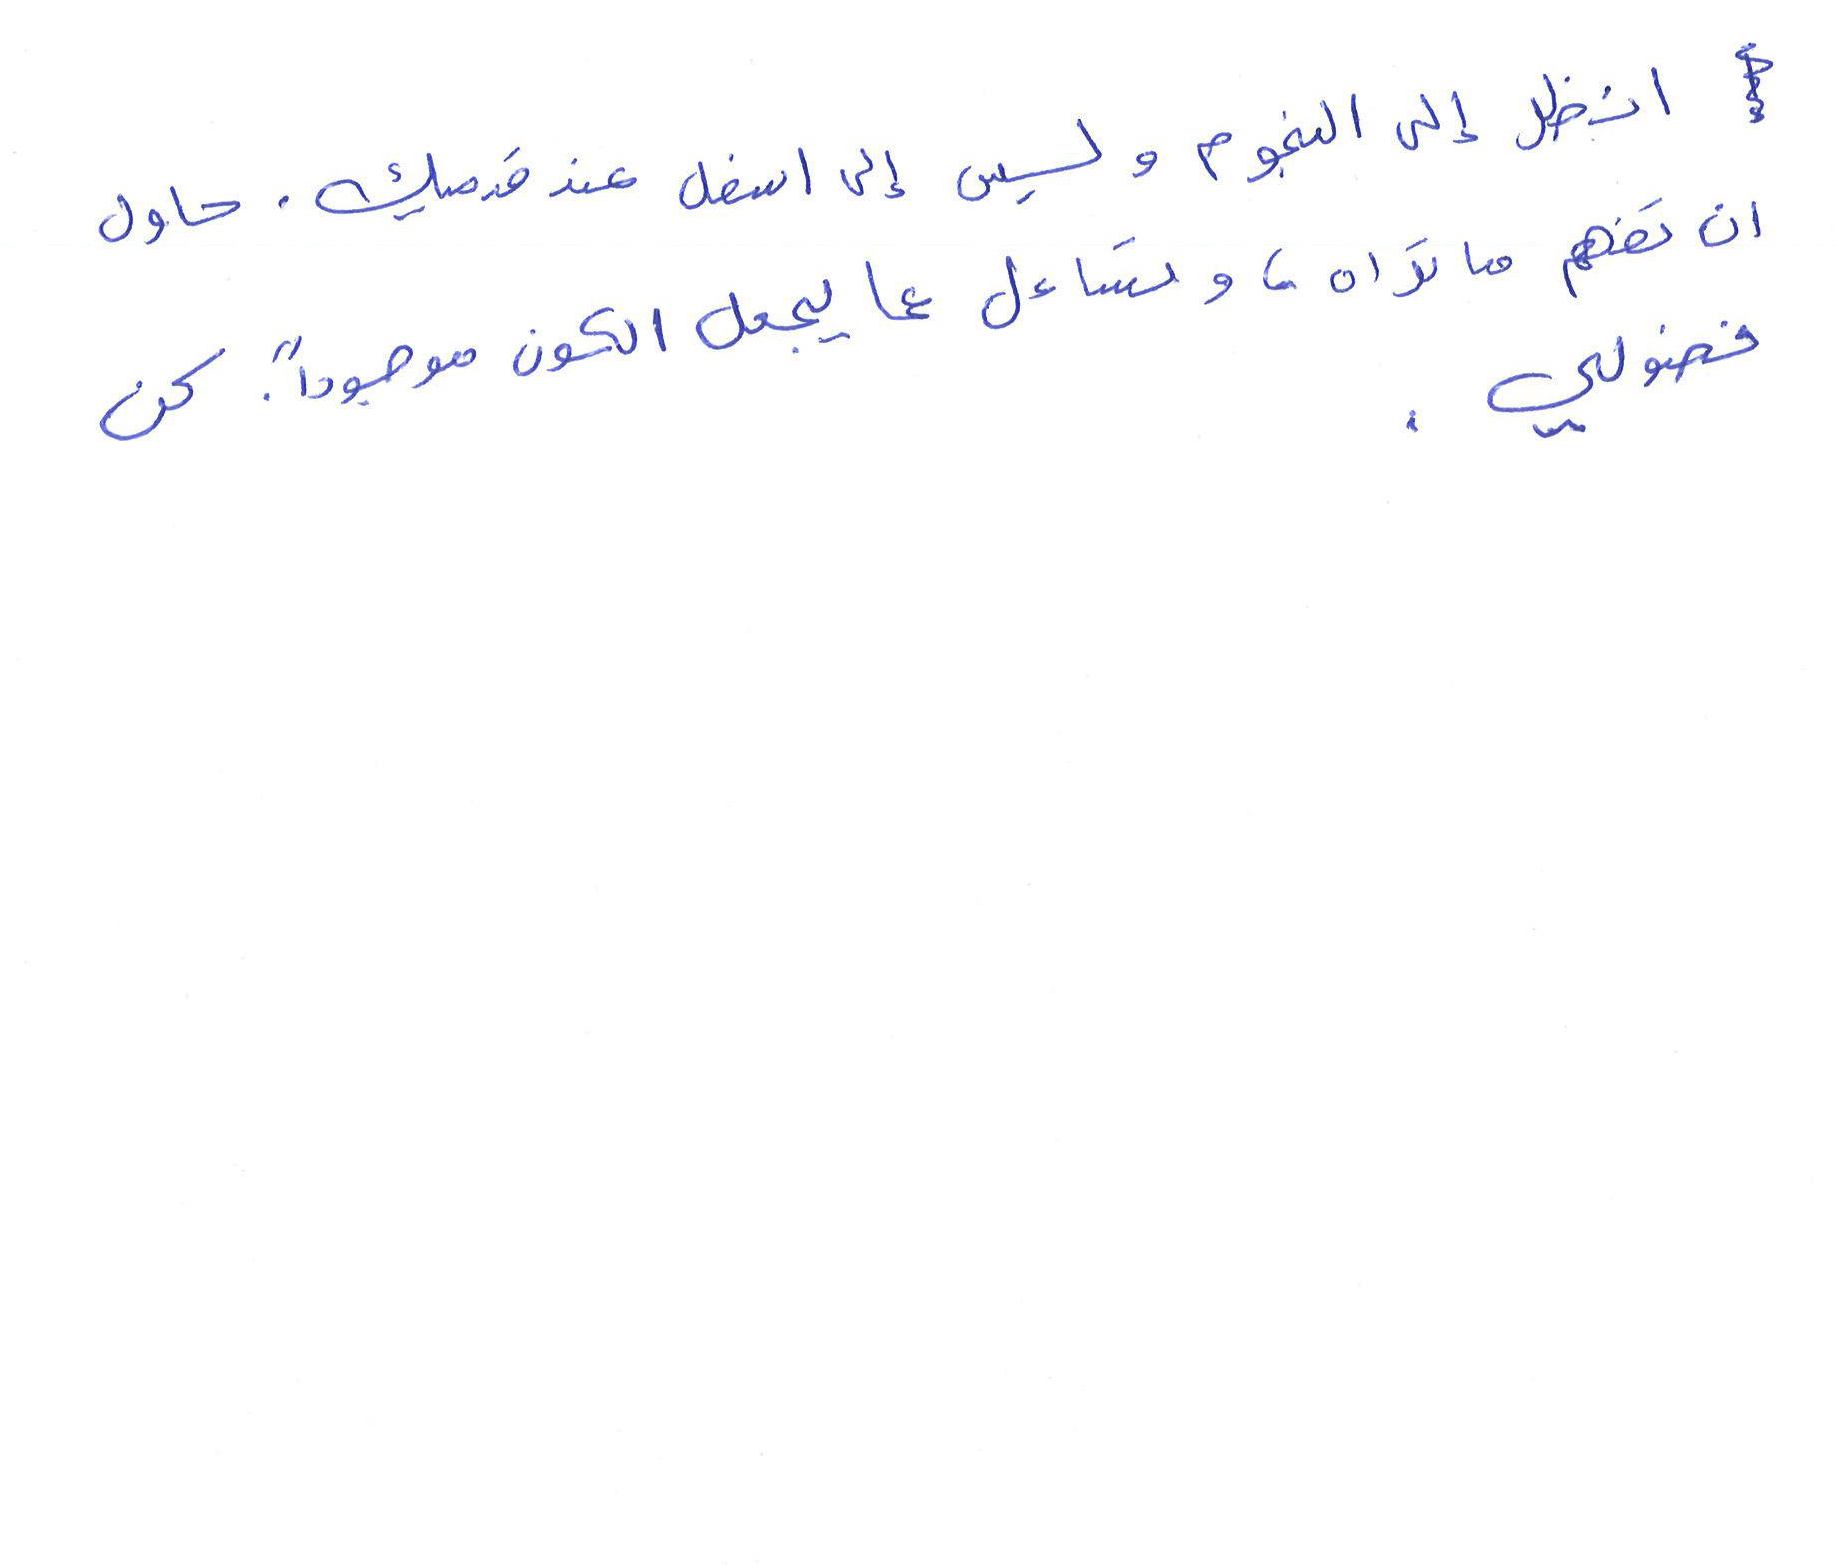 انظر إلى النجوم وليس إلى اسفل عند قدميك. حاول
ان تفهم ما تراه، وتساءل عما يجعل الكون موجوداً. كن
فضولي.